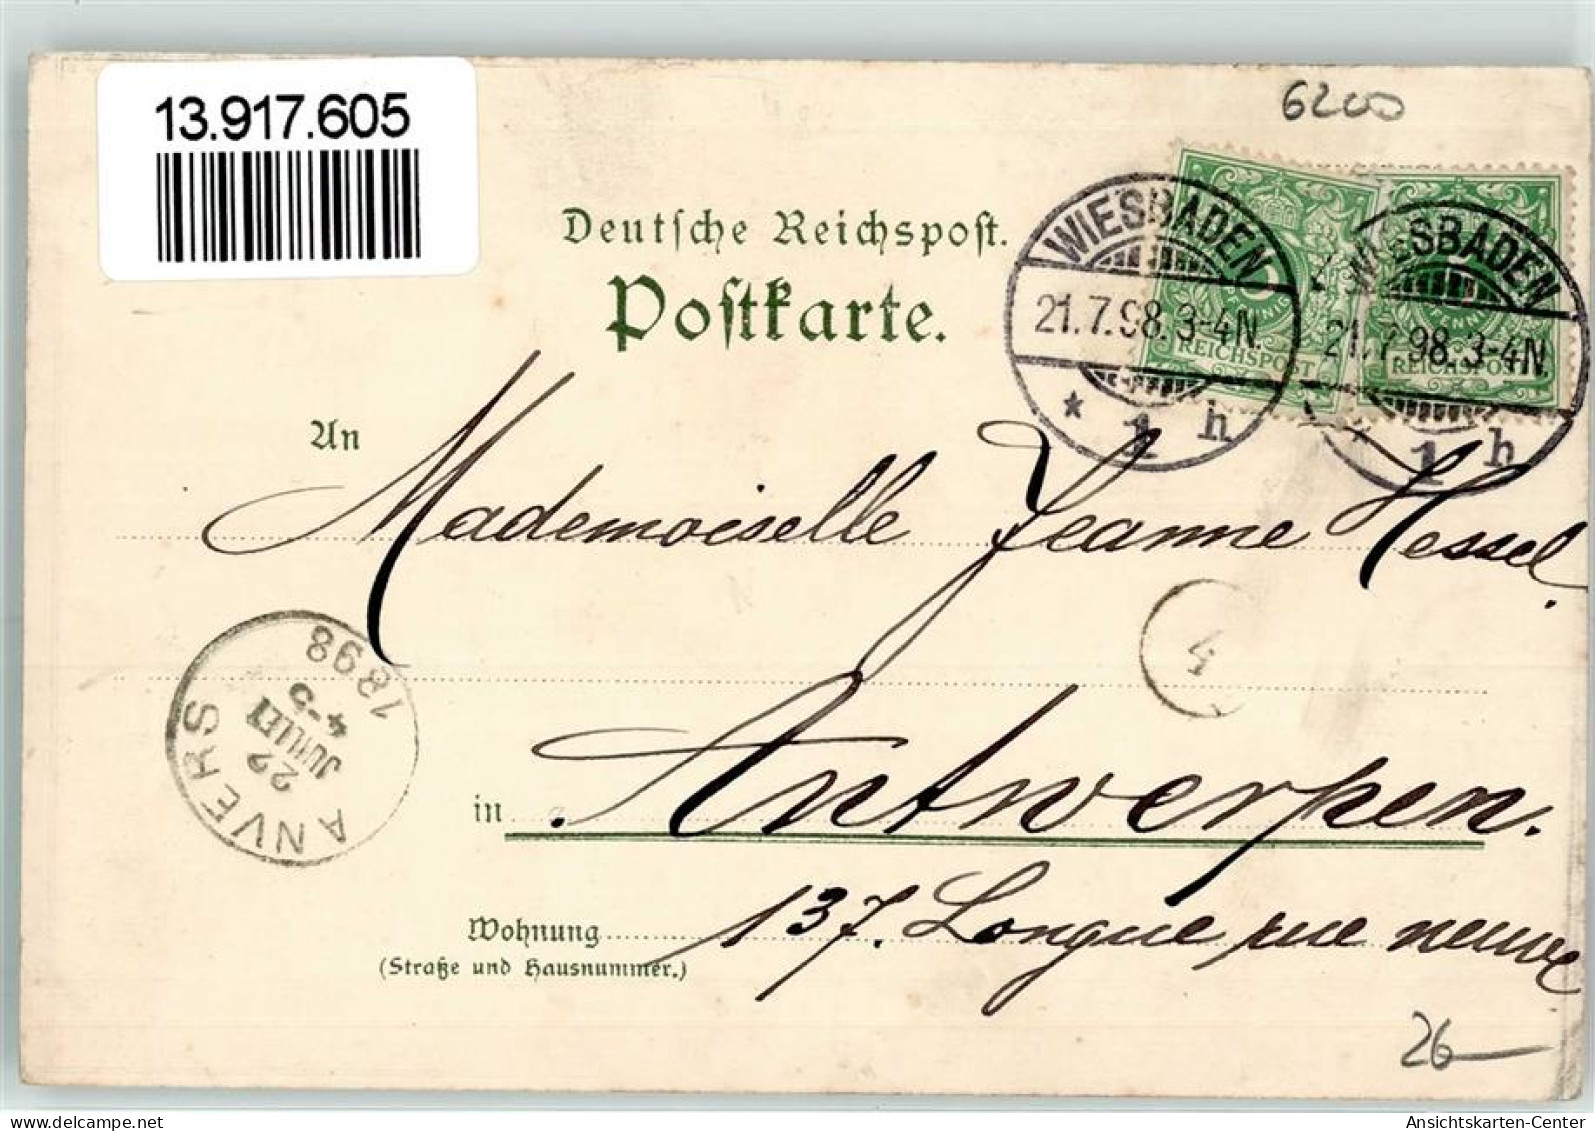 13.917.605
6200
Deutsche Reichspost.
Postkarte.
WIESBADEN
21.7.98.3-4N.
* 1 h
WIESBADEN
21.7.98.3-4N.
* 1 h
PFENNIG
REICHSPOST
PFENNIG
REICHSPOST
An
Mademoiselle Jeanne Hessel.
4
ANVERS
22
JUILLET
4-5
1898
in Antwerpen.
Wohnung 137. Longue rue neuve
(Straße und Hausnummer.)
26
Ansichtskarten-Center